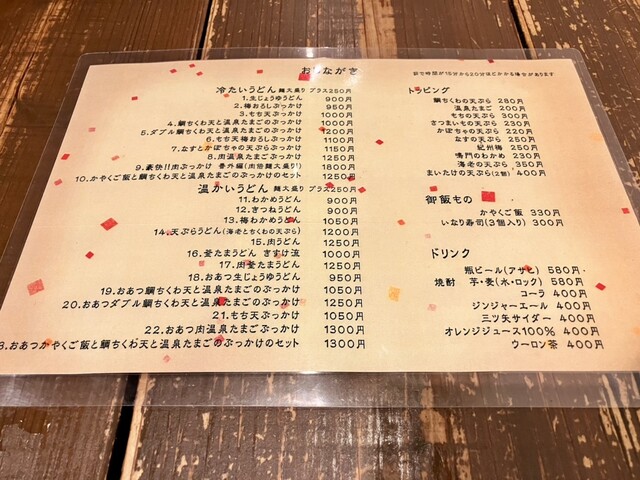 おしながき
茹で時間が15分から20分ほどかかる場合があります
冷たいうどん 麺大盛り プラス250円
1.生じょうゆうどん 900円
2.梅おろしぶっかけ 950円
3.もち天ぶっかけ 1000円
4.鯛ちくわ天と温泉たまごのぶっかけ 1000円
5.ダブル鯛ちくわ天と温泉たまごのぶっかけ 1200円
6.もち天梅おろしぶっかけ 1100円
7.なすとかぼちゃの天ぷらぶっかけ 1150円
8.肉温泉たまごぶっかけ 1250円
9.豪快!!肉ぶっかけ 番外編(肉倍麺大盛り!) 1800円
10.かやくご飯と鯛ちくわ天と温泉たまごのぶっかけのセット 1250円
温かいうどん 麺大盛り プラス250円
11.わかめうどん 900円
12.きつねうどん 900円
13.梅わかめうどん 1050円
14.天ぷらうどん(海老とちくわの天ぷら) 1200円
15.肉うどん 1250円
16.釜たまうどん きすけ流 1000円
17.肉釜たまうどん 1250円
18.おあつ生じょうゆうどん 950円
19.おあつ鯛ちくわ天と温泉たまごのぶっかけ 1050円
20.おあつダブル鯛ちくわ天と温泉たまごのぶっかけ 1250円
21.もち天ぶっかけ 1050円
22.おあつ肉温泉たまごぶっかけ 1300円
3.おあつかやくご飯と鯛ちくわ天と温泉たまごのぶっかけのセット 1300円
トッピング
鯛ちくわの天ぷら 280円
温泉たまご 200円
もちの天ぷら 300円
さつまいもの天ぷら 230円
かぼちゃの天ぷら 220円
なすの天ぷら 250円
紀州梅 250円
鳴門のわかめ 230円
海老の天ぷら 350円
まいたけの天ぷら(2個) 400円
御飯もの
かやくご飯 330円
いなり寿司(3個入り) 300円
ドリンク
瓶ビール(アサヒ) 580円
焼酎 芋・麦(水・ロック) 580円
コーラ 400円
ジンジャーエール 400円
三ツ矢サイダー 400円
オレンジジュース100% 400円
ウーロン茶 400円